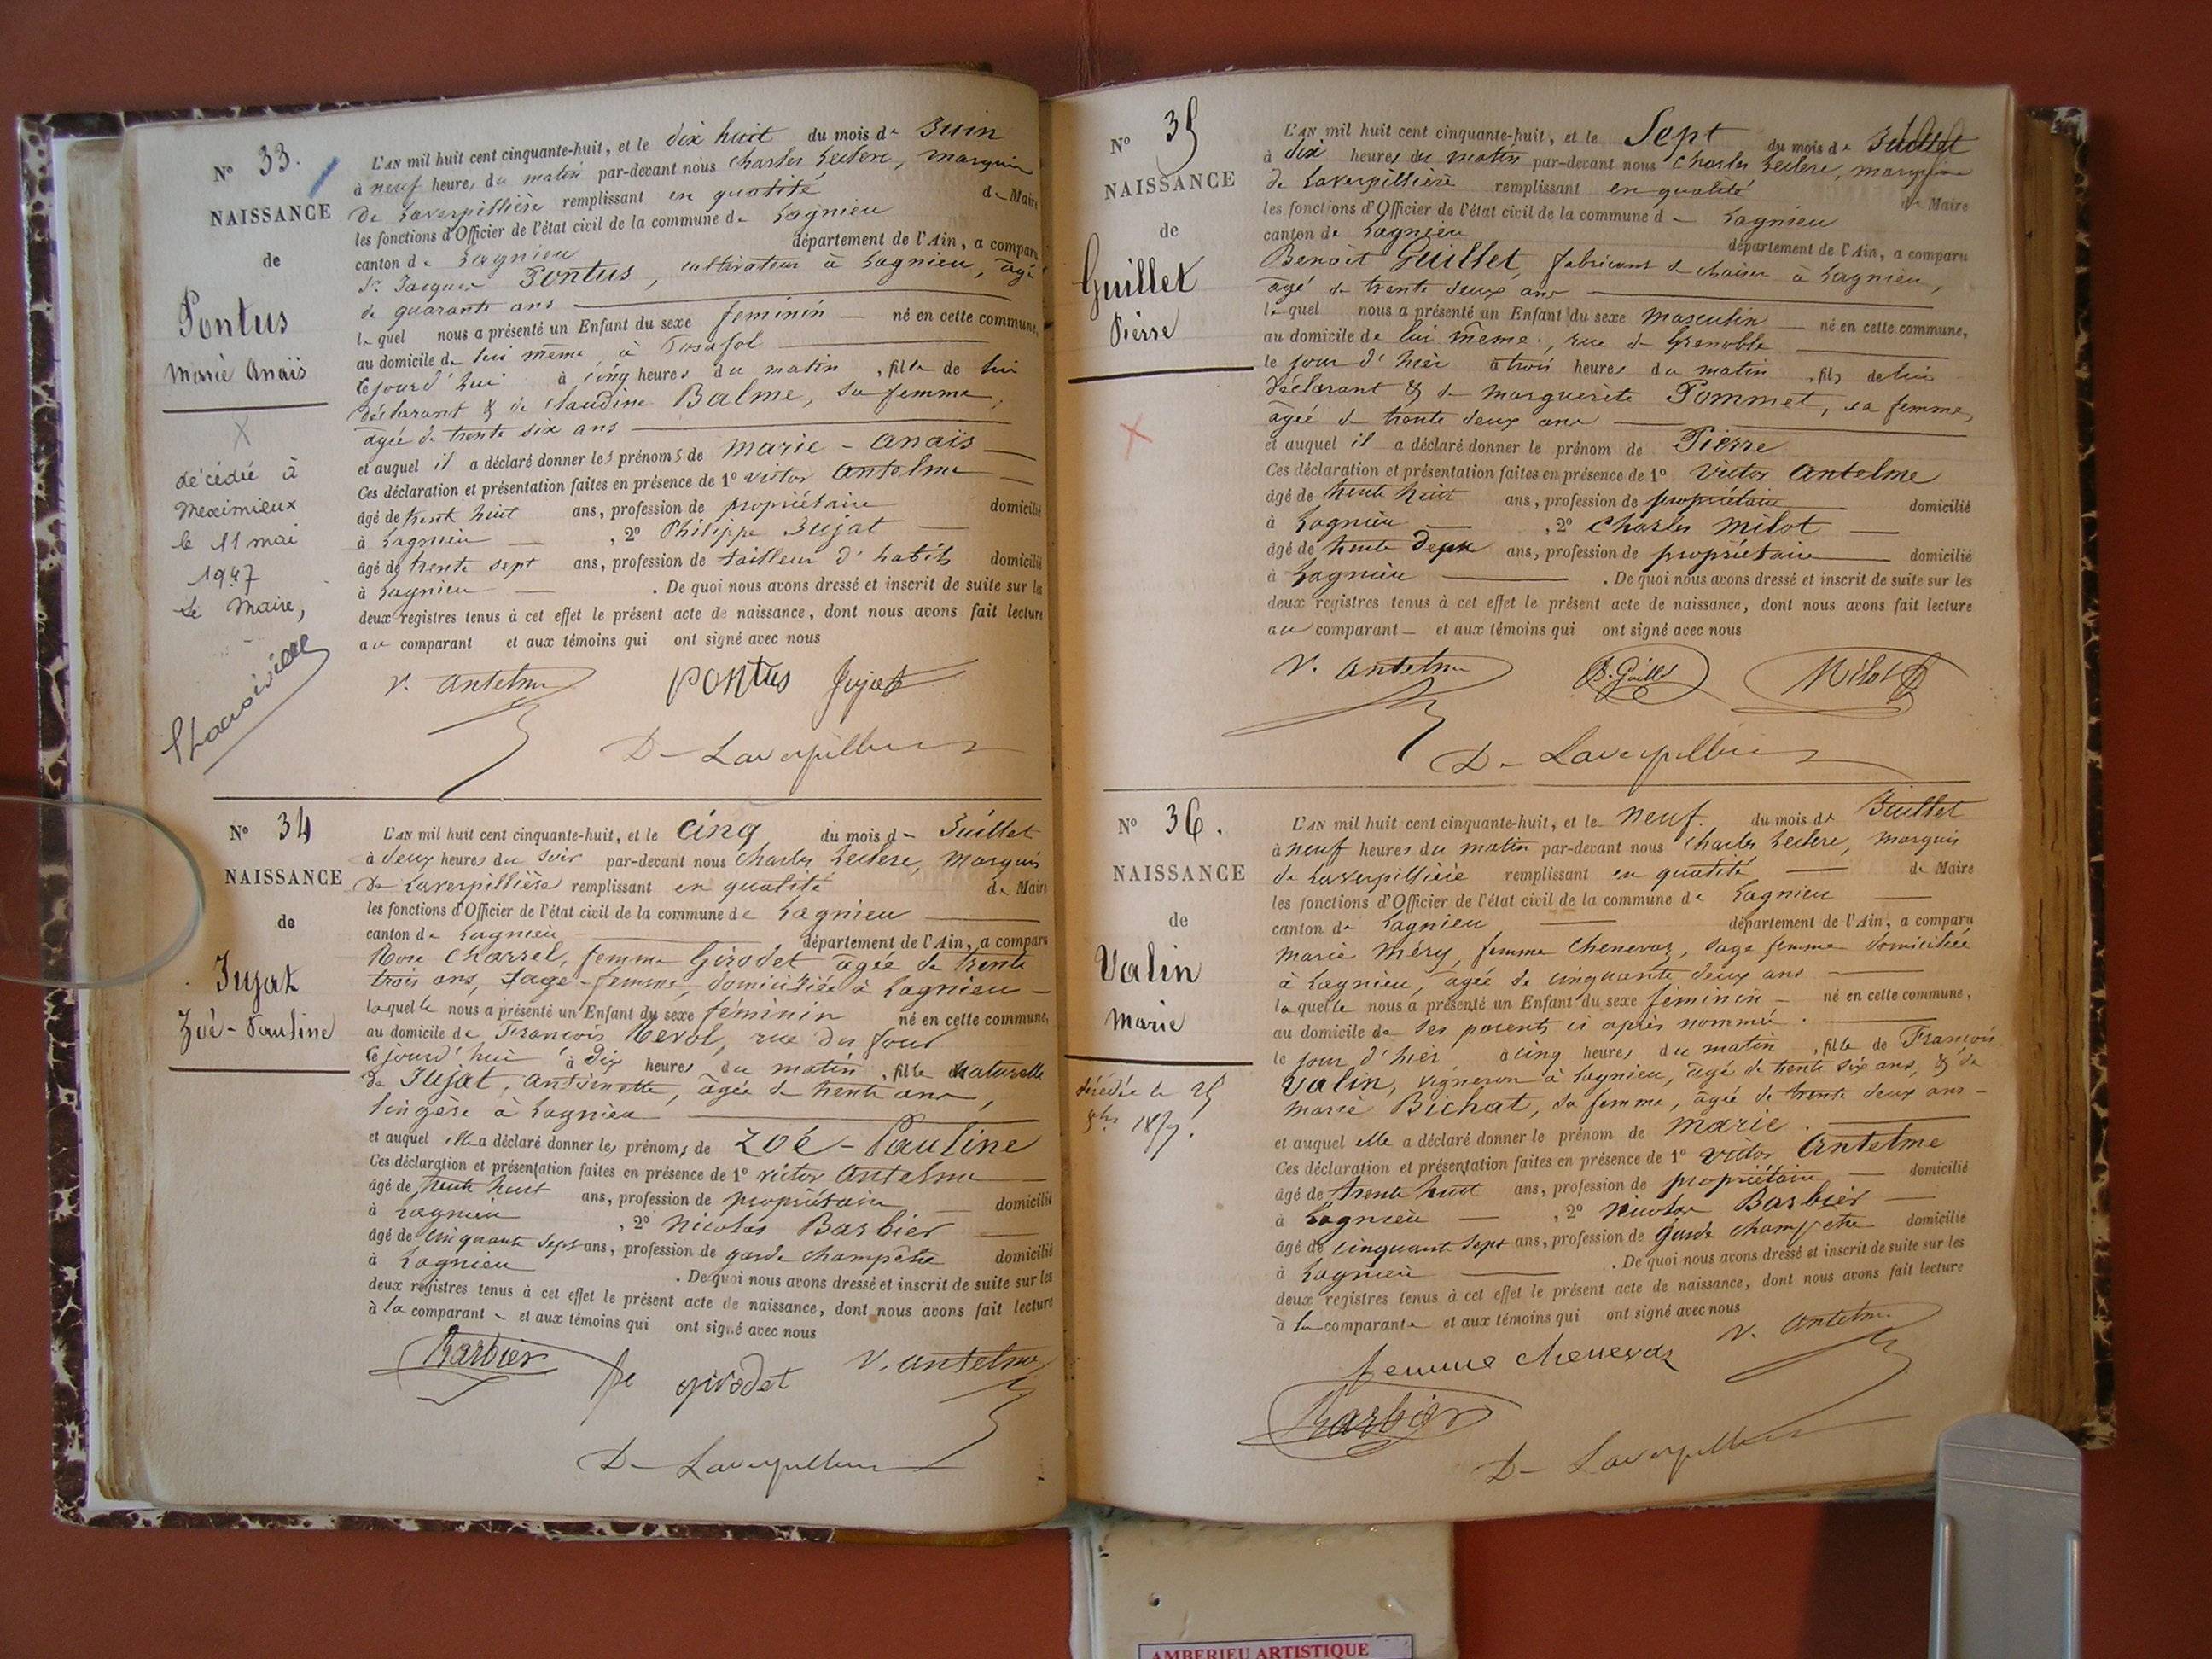 N° 33.
NAISSANCE
de
Pontus
Marie Anaïs
X
décédée à
Meximieux
le 11 mai
1947
Le Maire,
L'AN mil huit cent cinquante-huit, et le dix huit du mois de Juin
à neuf heures du matin par-devant nous Charles Leclere, marquis
De Laverpillière remplissant en qualité de Maire
les fonctions d'Officier de l'état civil de la commune de Lagnieu
canton de Lagnieu département de l'Ain, a comparu
Sr. Jacques Pontus, cultivateur à Lagnieu, âgé
de quarante ans
lequel nous a présenté un Enfant du sexe feminin né en cette commune,
au domicile de lui même, à Posafol
Cejourd'hui à cinq heures du matin, fille de lui
déclarant & de Claudine Balme, sa femme,
âgée de trente six ans
et auquel il a déclaré donner les prénoms de Marie-Anaïs
Ces déclaration et présentation faites en présence de 1° Victor Antelme
âgé de trent huit ans, profession de propriétaire domicilié
à Lagnieu, 2° Philippe Jujat
âgé de trente sept ans, profession de tailleur d'habits domicilié
à Lagnieu. De quoi nous avons dressé et inscrit de suite sur les
deux registres tenus à cet effet le présent acte de naissance, dont nous avons fait lecture
au comparant et aux témoins qui ont signé avec nous
V. Antelme Pontus Jujat
De Laverpillière
N° 34
NAISSANCE
de
Jujat
Zoé-Pauline
L'AN mil huit cent cinquante-huit, et le cinq du mois de Juillet
à deux heures du soir par-devant nous Charles Leclere, Marquis
De Laverpillière remplissant en qualité de Maire
les fonctions d'Officier de l'état civil de la commune de Lagnieu
canton de Lagnieu département de l'Ain, a comparu
Rose Charrel, femme Girodet âgée de trente
trois ans, sage-femme, domiciliée à Lagnieu
laquelle nous a présenté un Enfant du sexe féminin né en cette commune,
au domicile de François Revol, rue du four
Cejourd'hui à dix heures du matin, fille naturelle
de Jujat, Antoinette, âgée de trente ans,
lingère à Lagnieu
et auquel elle a déclaré donner les prénoms de Zoé-Pauline
Ces déclaration et présentation faites en présence de 1° Victor Antelme
âgé de trente huit ans, profession de propriétaire domicilié
à Lagnieu, 2° Nicolas Barbier
âgé de cinquante sept ans, profession de garde champêtre domicilié
à Lagnieu. De quoi nous avons dressé et inscrit de suite sur les
deux registres tenus à cet effet le présent acte de naissance, dont nous avons fait lecture
à la comparant et aux témoins qui ont signé avec nous
Barbier fe girodet V. Antelme
De Laverpillière
N° 35
NAISSANCE
de
Guillet
Pierre
X
L'AN mil huit cent cinquante-huit, et le Sept du mois de Juillet
à dix heures du matin par-devant nous Charles Leclere, marquis
de Laverpillière remplissant en qualité de Maire
les fonctions d'Officier de l'état civil de la commune de Lagnieu
canton de Lagnieu département de l'Ain, a comparu
Benoit Guillet, fabricant de chaises à Lagnieu,
âgé de trente deux ans
lequel nous a présenté un Enfant du sexe masculin né en cette commune,
au domicile de lui même, rue de Grenoble
le jour d'hier à trois heures du matin, fils de lui
déclarant & de Marguerite Pommet, sa femme,
âgée de trente deux ans
et auquel il a déclaré donner le prénom de Pierre
Ces déclaration et présentation faites en présence de 1° Victor Antelme
âgé de trente huit ans, profession de propriétaire domicilié
à Lagnieu, 2° Charles Milot
âgé de trente deux ans, profession de propriétaire domicilié
à Lagnieu. De quoi nous avons dressé et inscrit de suite sur les
deux registres tenus à cet effet le présent acte de naissance, dont nous avons fait lecture
au comparant et aux témoins qui ont signé avec nous
V. Antelme B. Guillet Milot
De Laverpillière
N° 36.
NAISSANCE
de
Valin
Marie
décédée le 25
L'AN mil huit cent cinquante-huit, et le neuf. du mois de Juillet
à neuf heures du matin par-devant nous Charles Leclere, marquis
de Laverpillière remplissant en qualité de Maire
les fonctions d'Officier de l'état civil de la commune de Lagnieu
canton de Lagnieu département de l'Ain, a comparu
Marie Méry, femme Chenevaz, sage femme domiciliée
à Lagnieu, âgée de cinquante deux ans
laquelle nous a présenté un Enfant du sexe féminin né en cette commune,
au domicile de ses parents ci après nommés.
le jour d'hier à cinq heures du matin, fille de François
Valin, vigneron à Lagnieu, âgé de trente six ans, & de
Marie Bichat, sa femme, âgée de trente deux ans
et auquel elle a déclaré donner le prénom de Marie.
Ces déclaration et présentation faites en présence de 1° Victor Antelme
âgé de trente huit ans, profession de propriétaire domicilié
à Lagnieu, 2° Nicolas Barbier
âgé de cinquante sept ans, profession de Garde champêtre domicilié
à Lagnieu. De quoi nous avons dressé et inscrit de suite sur les
deux registres tenus à cet effet le présent acte de naissance, dont nous avons fait lecture
à la comparante et aux témoins qui ont signé avec nous
femme chenevaz V. Antelme
Barbier
De Laverpillière
AMBERIEU ARTISTIQUE